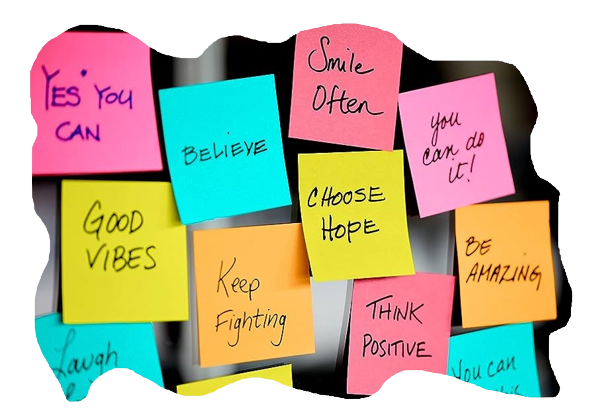 YES YOU
CAN
BELIEVE
Smile
Often
you
can do
it!
GOOD
VIBES
CHOOSE
HOPE
Keep
Fighting
BE
AMAZING
THINK
POSITIVE
Laugh
You can